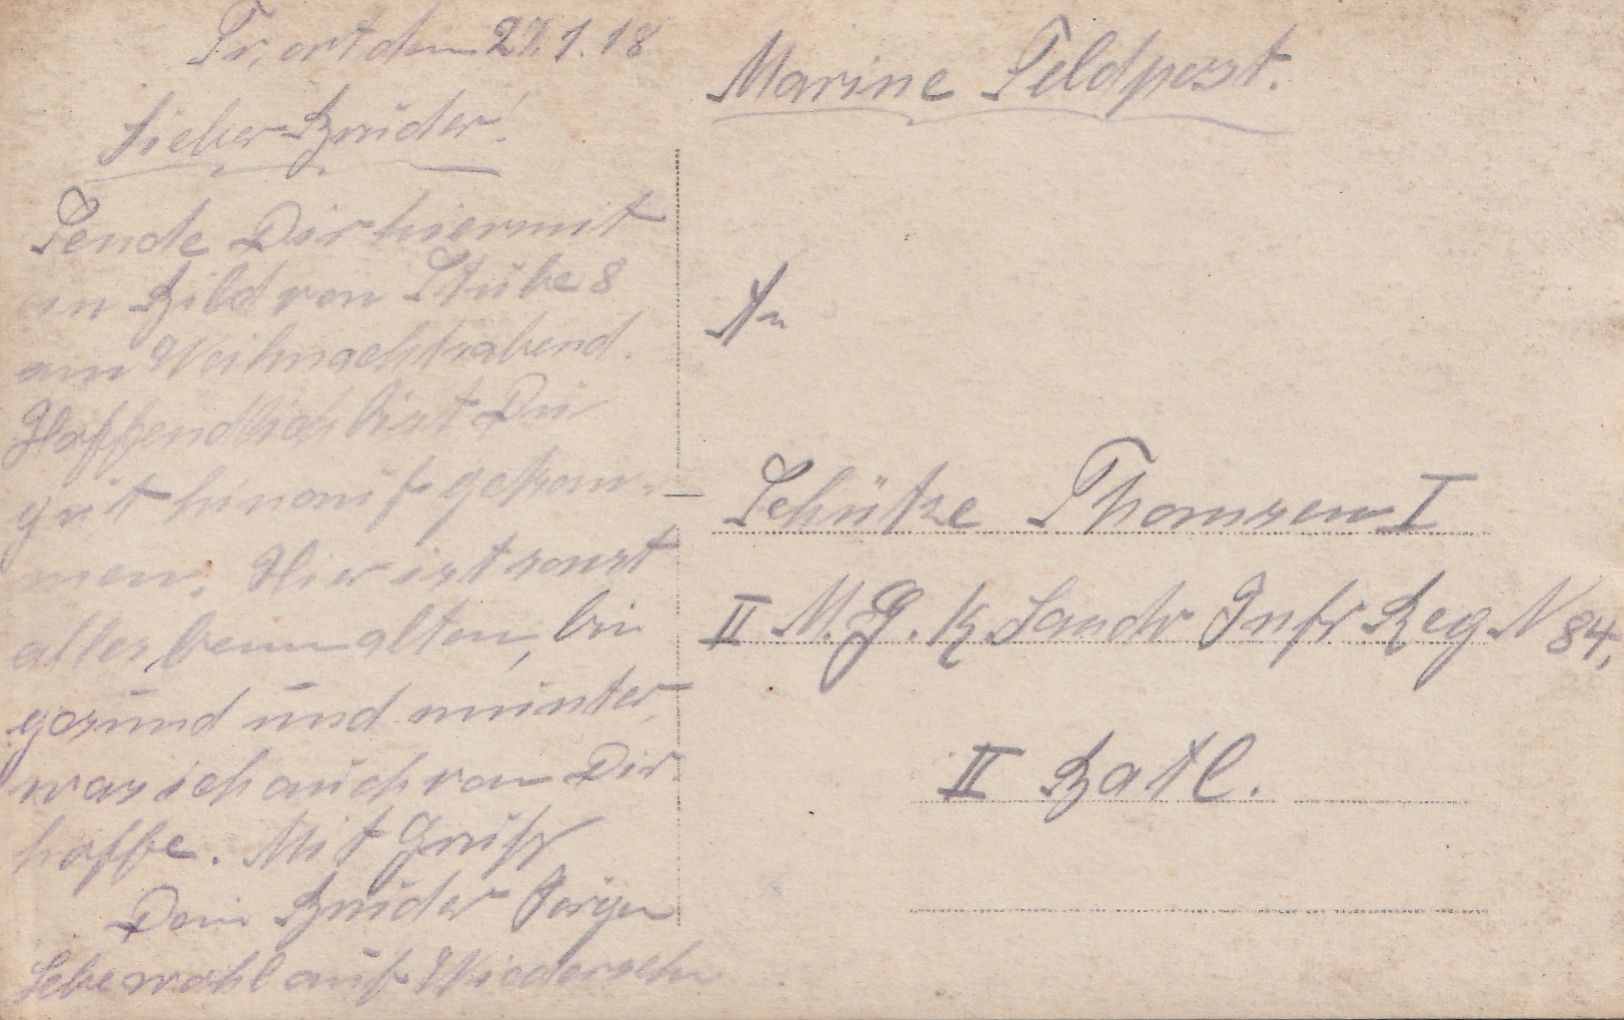 Fr, ort den 27.1.18
Lieber Bruder!
Sende Dir hiermit
ein Bild von Stube 8
am Weihnachtsabend.
Hoffendlich bist Du
gut hinauf gekom-
men. Hier ist sonst
alles beim alten, bin
gesund und munter,
was ich auch von Dir
hoffe. Mit Gruß
Dein Bruder Jürgen
Lebewohl auf Wiedersehn
Marine Feldpost.
An
Schütze Thomsen I
II M. G. K Landw Infr Reg N 84,
II Batl.